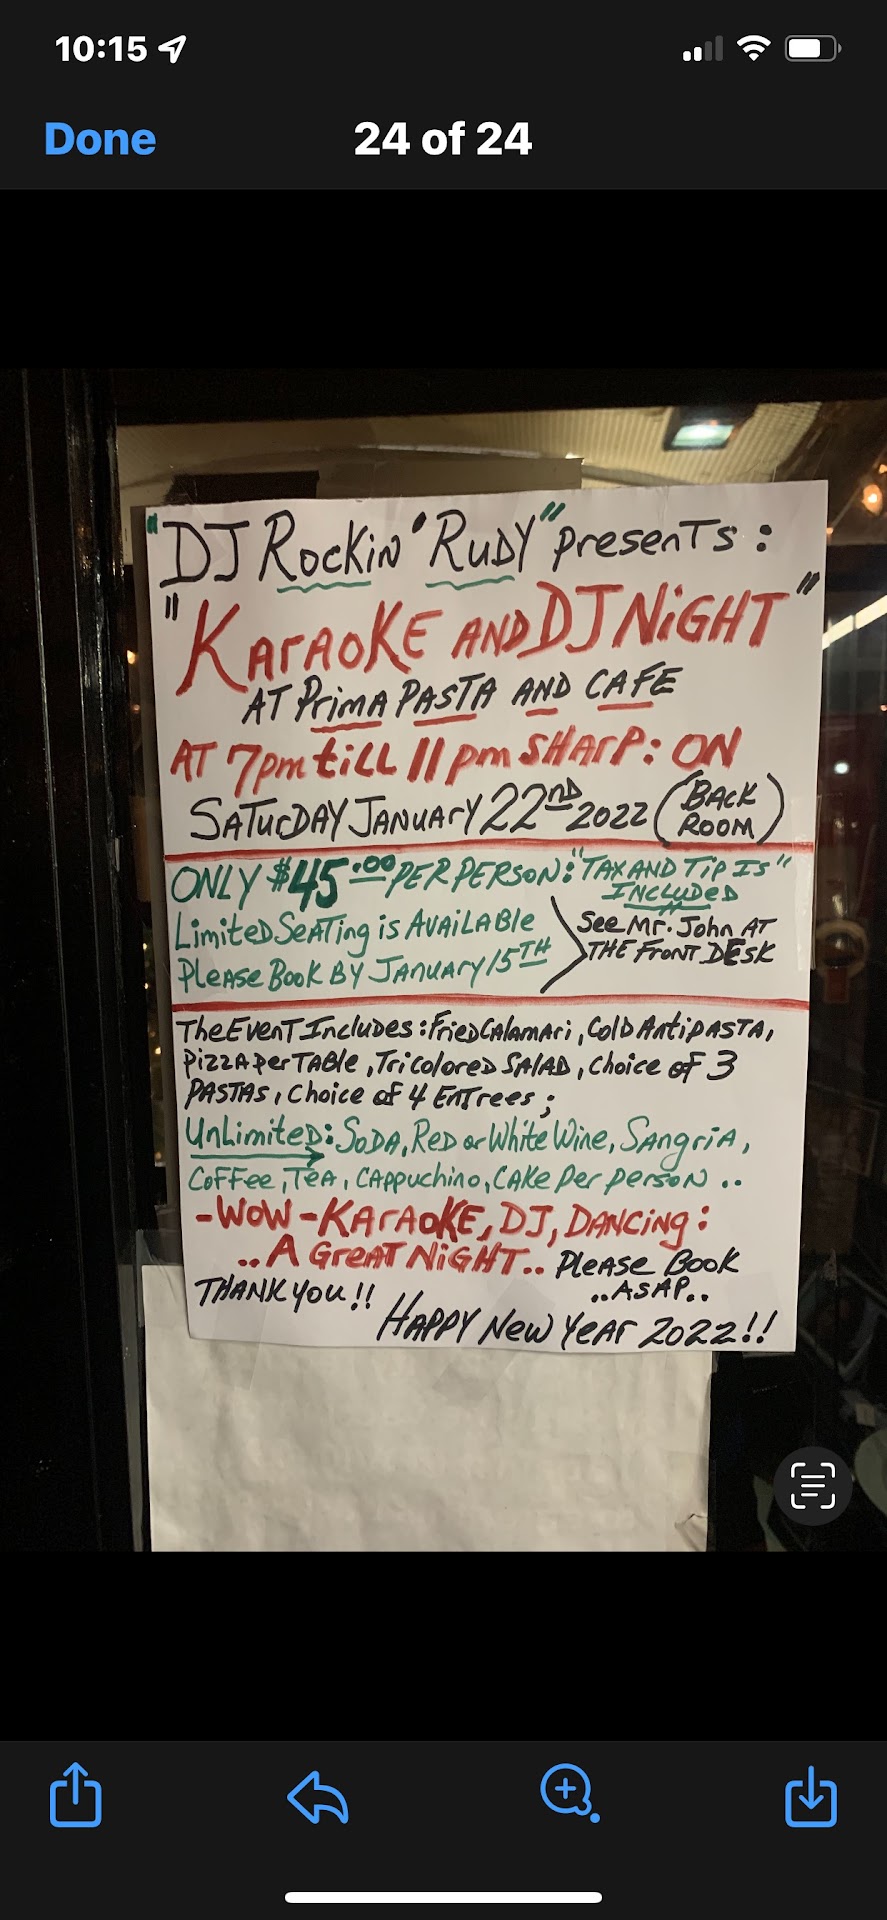 10:15
Done
24 of 24
"DJ Rockin' Rudy" presents:
"Karaoke and DJ Night"
AT Prima Pasta and Cafe
AT 7pm till 11pm SHArP: ON
Saturday January 22nd 2022 (Back Room)
ONLY $45.00 PER PERSON: "TAX AND TIP IS" INCLUDED
Limited Seating is Available
Please Book By January 15TH
See Mr. John AT
THE Front DESK
The Event Includes: Fried Calamari, Cold Antipasta,
Pizza per Table, Tricolored Salad, choice of 3
Pastas, Choice of 4 Entrees;
Unlimited: Soda, Red or White Wine, Sangria,
Coffee, Tea, Cappuchino, Cake per person ..
-WOW-KARAOKE, DJ, DANCING:
..A Great Night.. Please Book
..ASAP..
THANK you!!
Happy New Year 2022!!